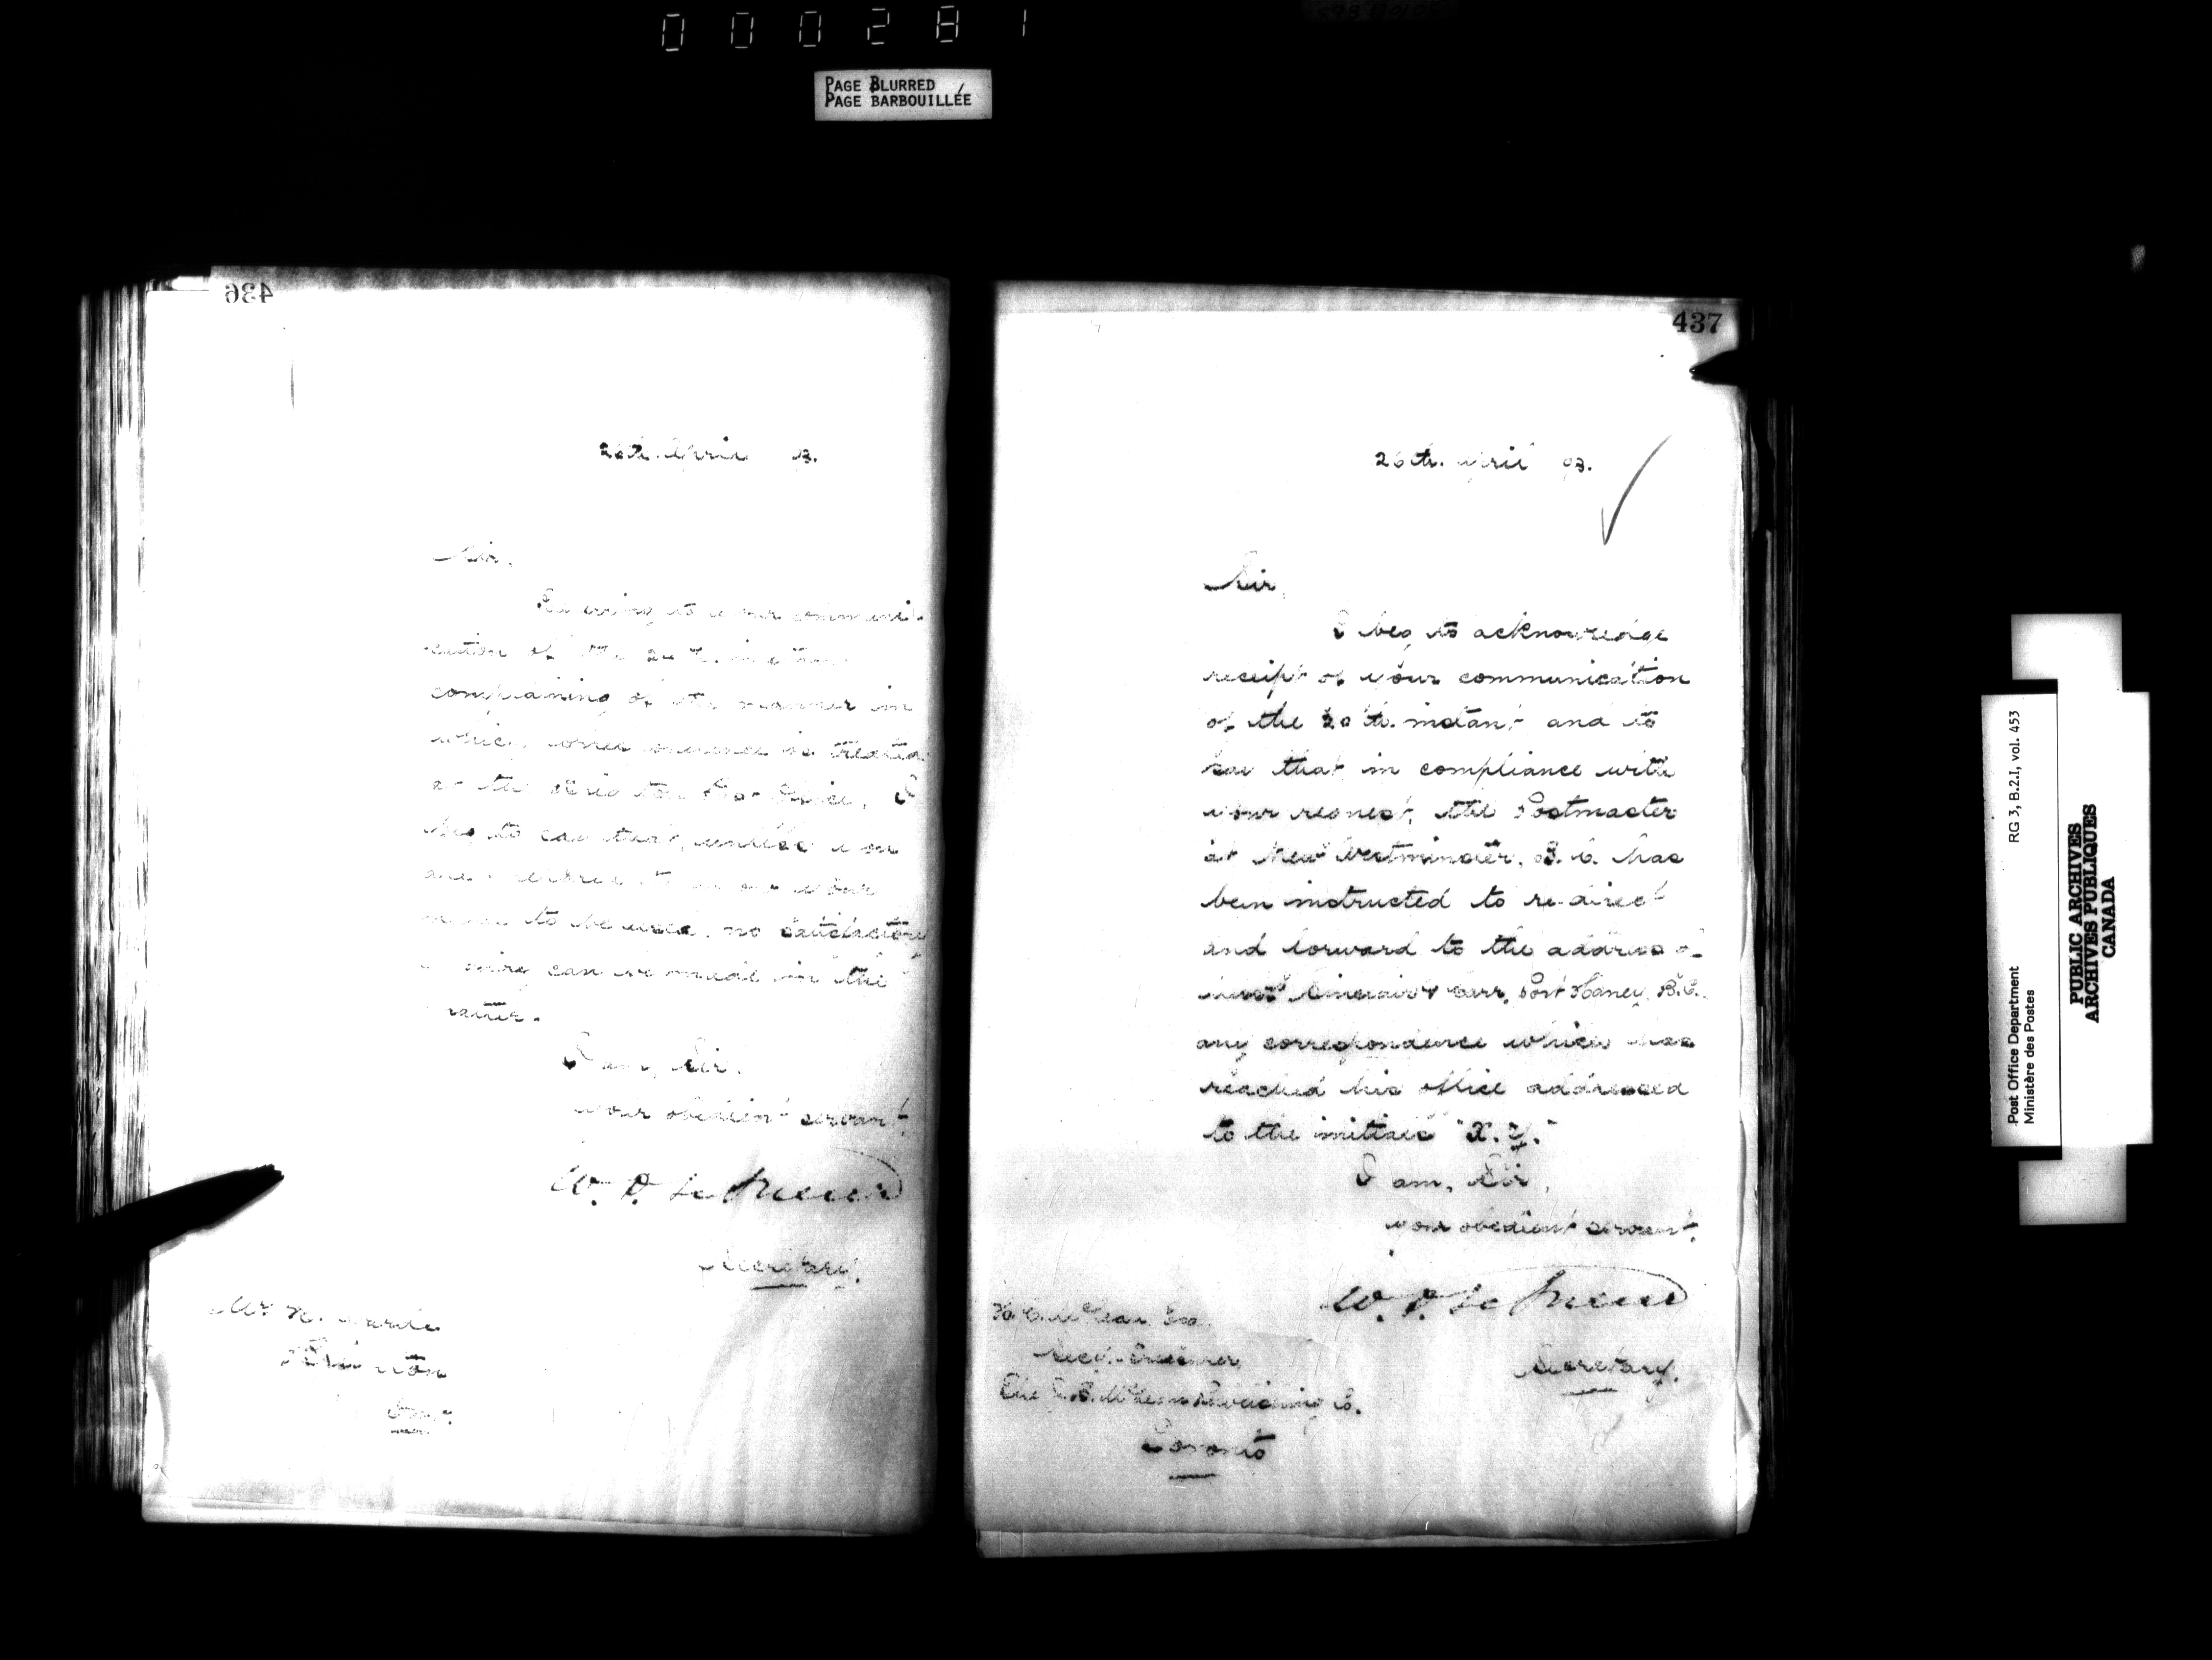 000281
PAGE BLURRED
PAGE BARBOUILLÉE
436
26th April 93.
Sir,
Referring to your communi-
cation of the instant
complaining of the manner in
which correspondence is treated
at the Post Office, I
beg to say that, unless you
are to your
name to be used, no satisfactory
can be made in the
matter.
I am, Sir,
your obedient servant,
W. D. Le Sueur
Secretary.
Mr
Ont.
437
26th. April 93.
Sir,
I beg to acknowledge
receipt of your communication
of the 20th. instant and to
say that in compliance with
your request, the Postmaster
at New Westminster, B. C. has
been instructed to re-direct
and forward to the address of
Sinclair & Carr, Port Haney, B.C.
any correspondence which has
reached his office addressed
to the initials "X. Y."
I am, Sir,
your obedient servant,
W. D. Le Sueur
Secretary.
McLean Esq.
Secy.-Treasurer,
The J. B. McLean Publishing Co.
Toronto
Post Office Department RG 3, B.2.I, vol. 453
Ministère des Postes
PUBLIC ARCHIVES
ARCHIVES PUBLIQUES
CANADA